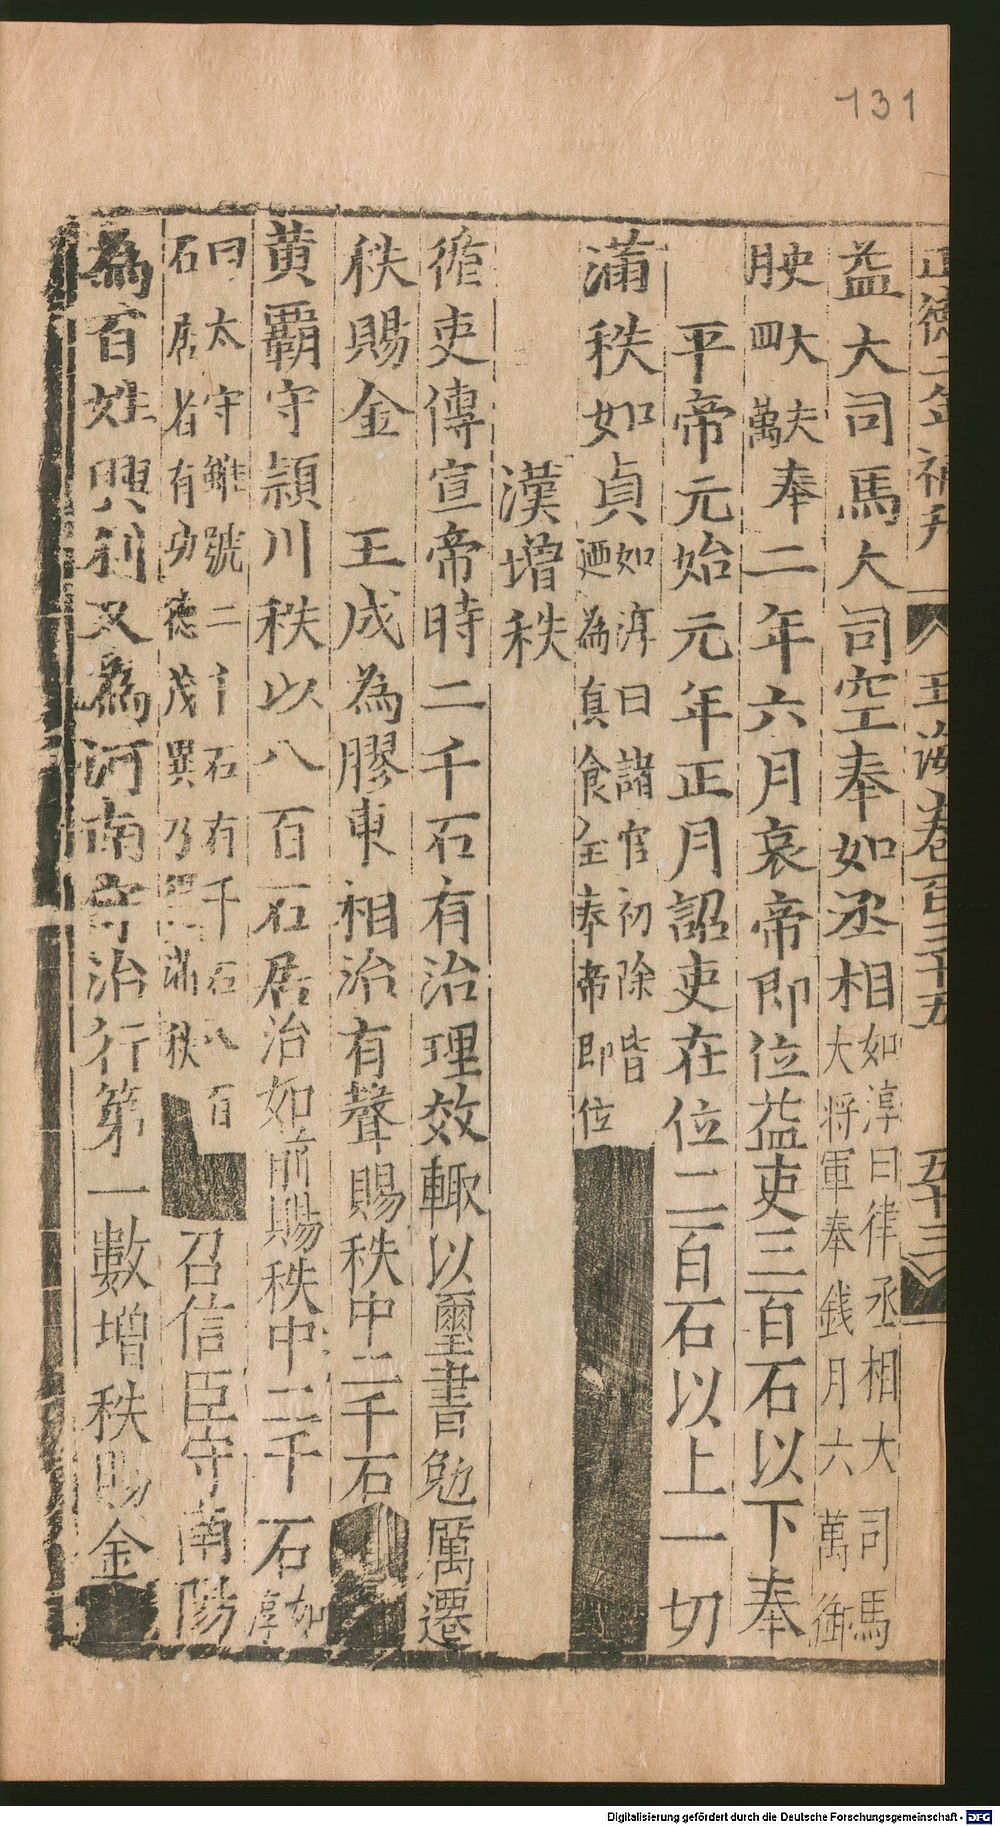 131
正德二年補刋 玉海卷一百三十五 五十三
益大司馬大司空奉如丞相如淳曰律丞相大司馬大将軍奉銭月六萬御
史大夫奉月四萬奉二年六月哀帝即位益吏三百石以下奉
平帝元始元年正月詔吏在位二百石以上一切
滿秩如真如淳曰諸官初除皆廼為真食全奉帝即位
漢增秩
循吏傳宣帝時二千石有治理效輙以璽書勉厲遷
秩賜金 王成為膠東相治有聲賜秩中二千石
黄霸守潁川秩以八百石居治如前賜秩中二千石如淳
曰太守雖號二千石有千石八百石居者有功德茂異乃滿秩 召信臣守南陽
為百姓興利又為河南守治行第一數增秩賜金
Digitalisierung gefördert durch die Deutsche Forschungsgemeinschaft - DFG